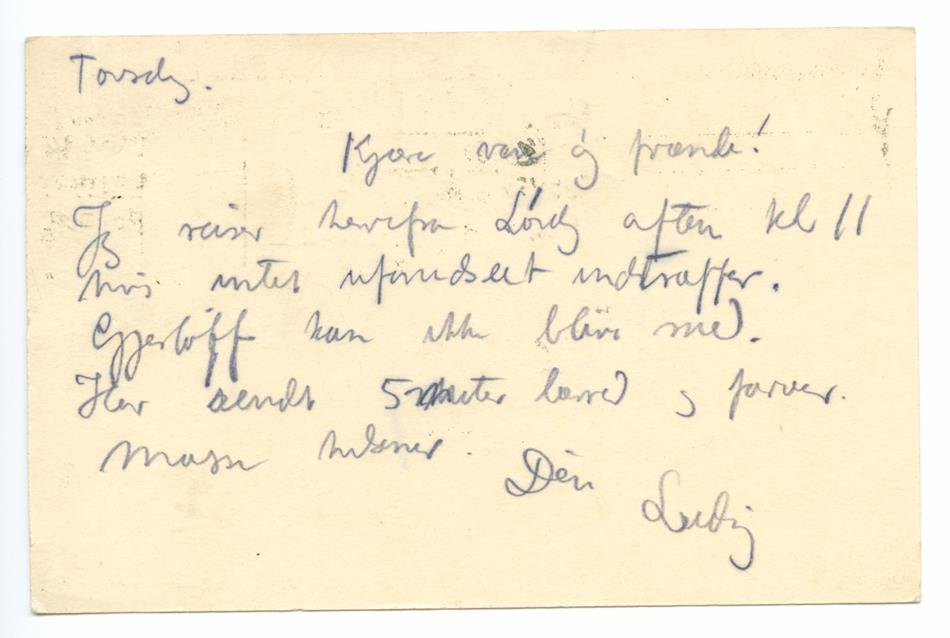 Torsdg.
Kjære ven og frænde!
Jg reiser herifra Lørdg aften kl 11
hvis intet uforudseet indtræffer.
Gjerløff kan ikke blive med.
Har sendt 5 meter lærred og farver.
Masse hilsner.
Din
Ludvig